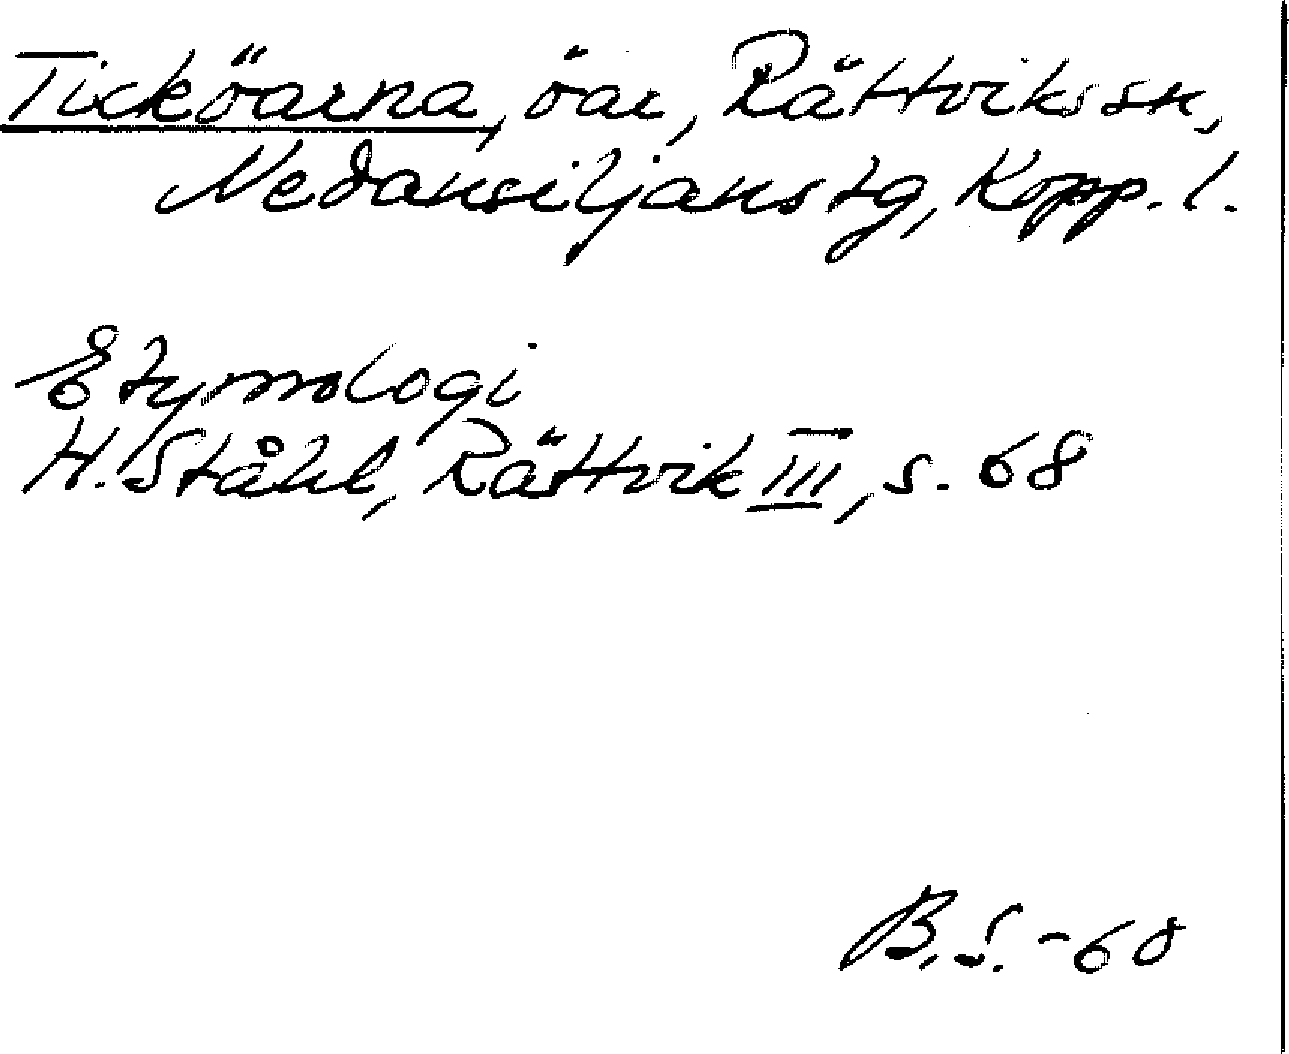 Ticköarna, öar, Rättviks sn,
Nedansiljans tg, Kopp. l.
Etymologi
H. Ståhl, Rättvik III, s. 68
B.S. -60